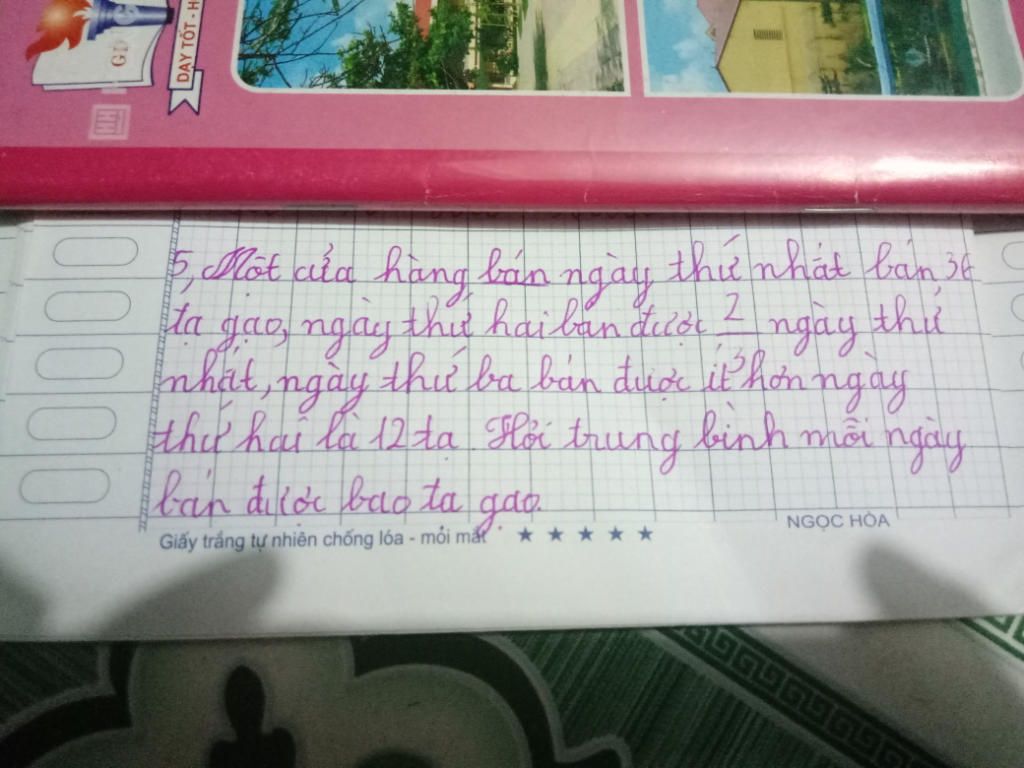 DẠY TỐT - H
GD
5, Một cửa hàng bán ngày thứ nhất bán 36
tạ gạo, ngày thứ hai bán được 2/3 ngày thứ
nhất, ngày thứ ba bán được ít hơn ngày
thứ hai là 12 tạ Hỏi trung bình mỗi ngày
bán được bao tạ gạo.
Giấy trắng tự nhiên chống lóa - mỏi mắt ★ ★ ★ ★ ★ NGỌC HÒA